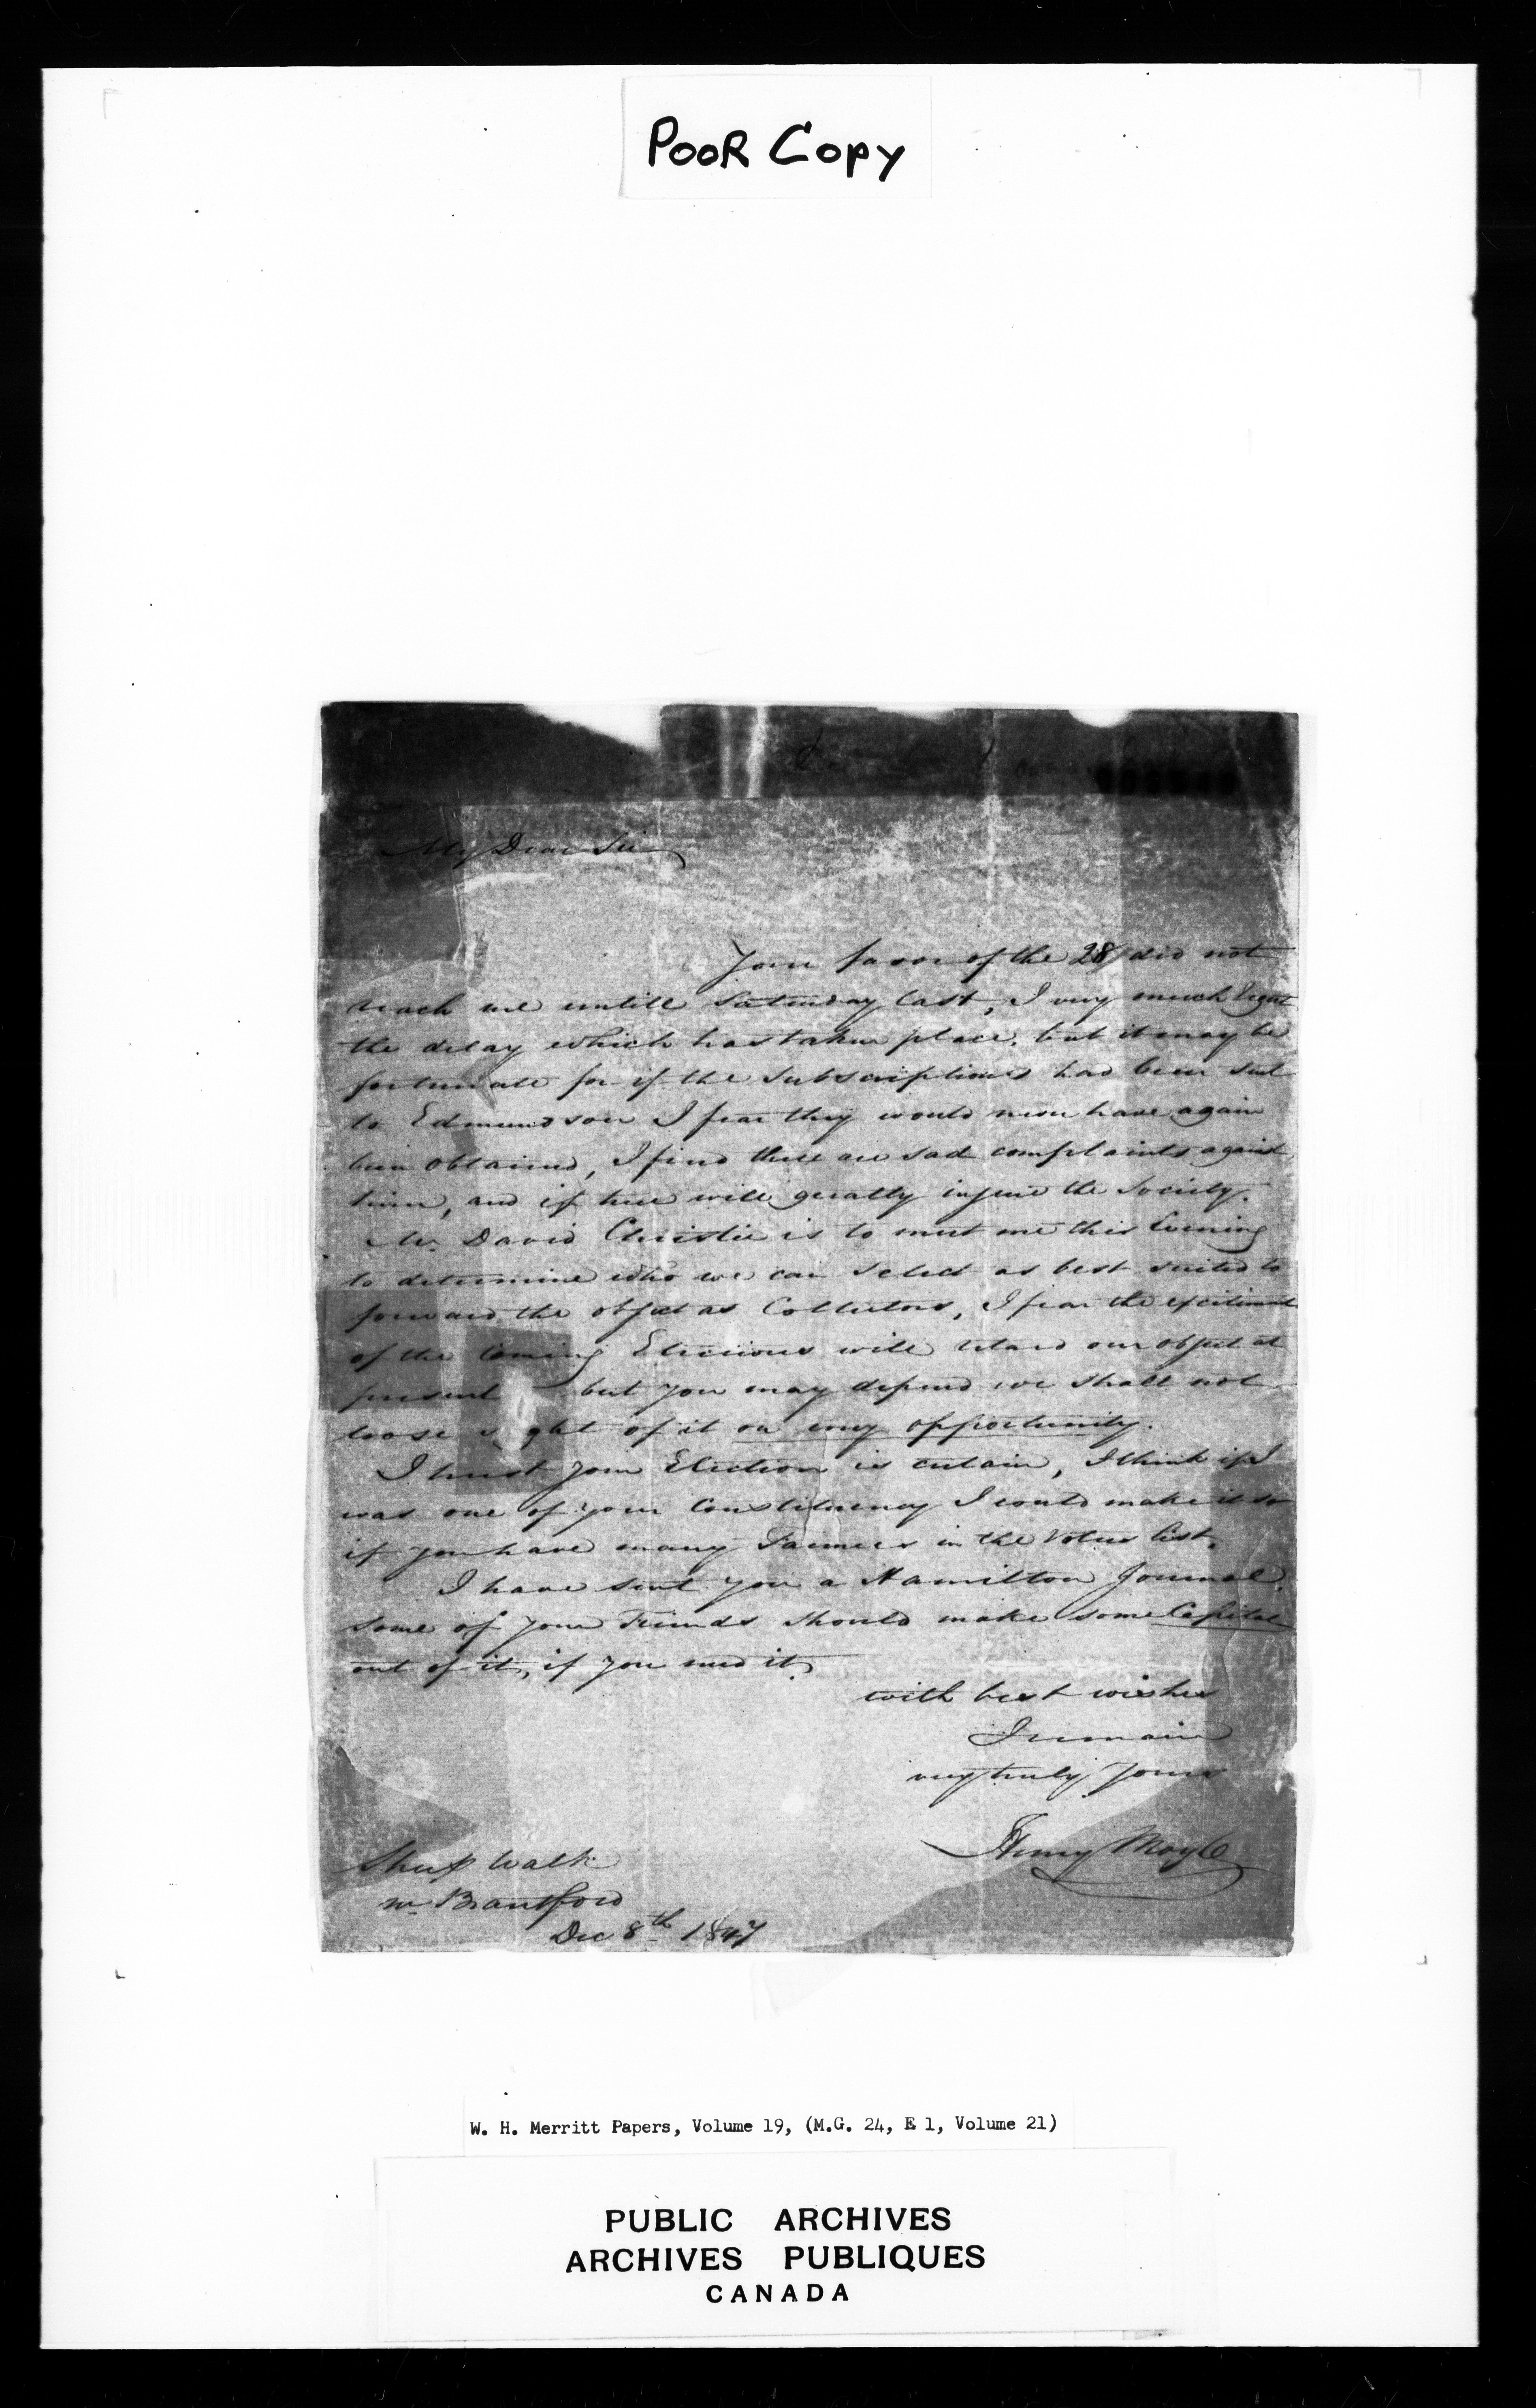 POOR COPY
My Dear Sir
Your favor of the 28 did not
reach me untill Saturday last, I very much regret
the delay which has taken place, but it may be
fortunate for if the Subscriptions had been sent
to Edmundson I fear they would never have again
been obtained, I find there are sad complaints against
him, and if true will greatly injure the Society.
Mr. David Christie is to meet me this Evening
to determine who we can select as best suited to
forward the object as Collectors, I fear the excitement
of the Coming Elections will retard our object at
present but you may depend we shall not
loose sight of it on every opportunity.
I trust your Election is certain, I think if I
was one of your Constituency I could make it so
if you have many Farmers in the Voters list.
I have sent you a Hamilton Journal.
some of your Friends should make some Capital
out of it, if you need it,
with best wishes
I remain
very truly Yours
Henry Moyle
Sheep Walk
nr Brantford
Dec 8th 1847
W. H. Merritt Papers, Volume 19, (M.G. 24, E 1, Volume 21)
PUBLIC ARCHIVES
ARCHIVES PUBLIQUES
CANADA